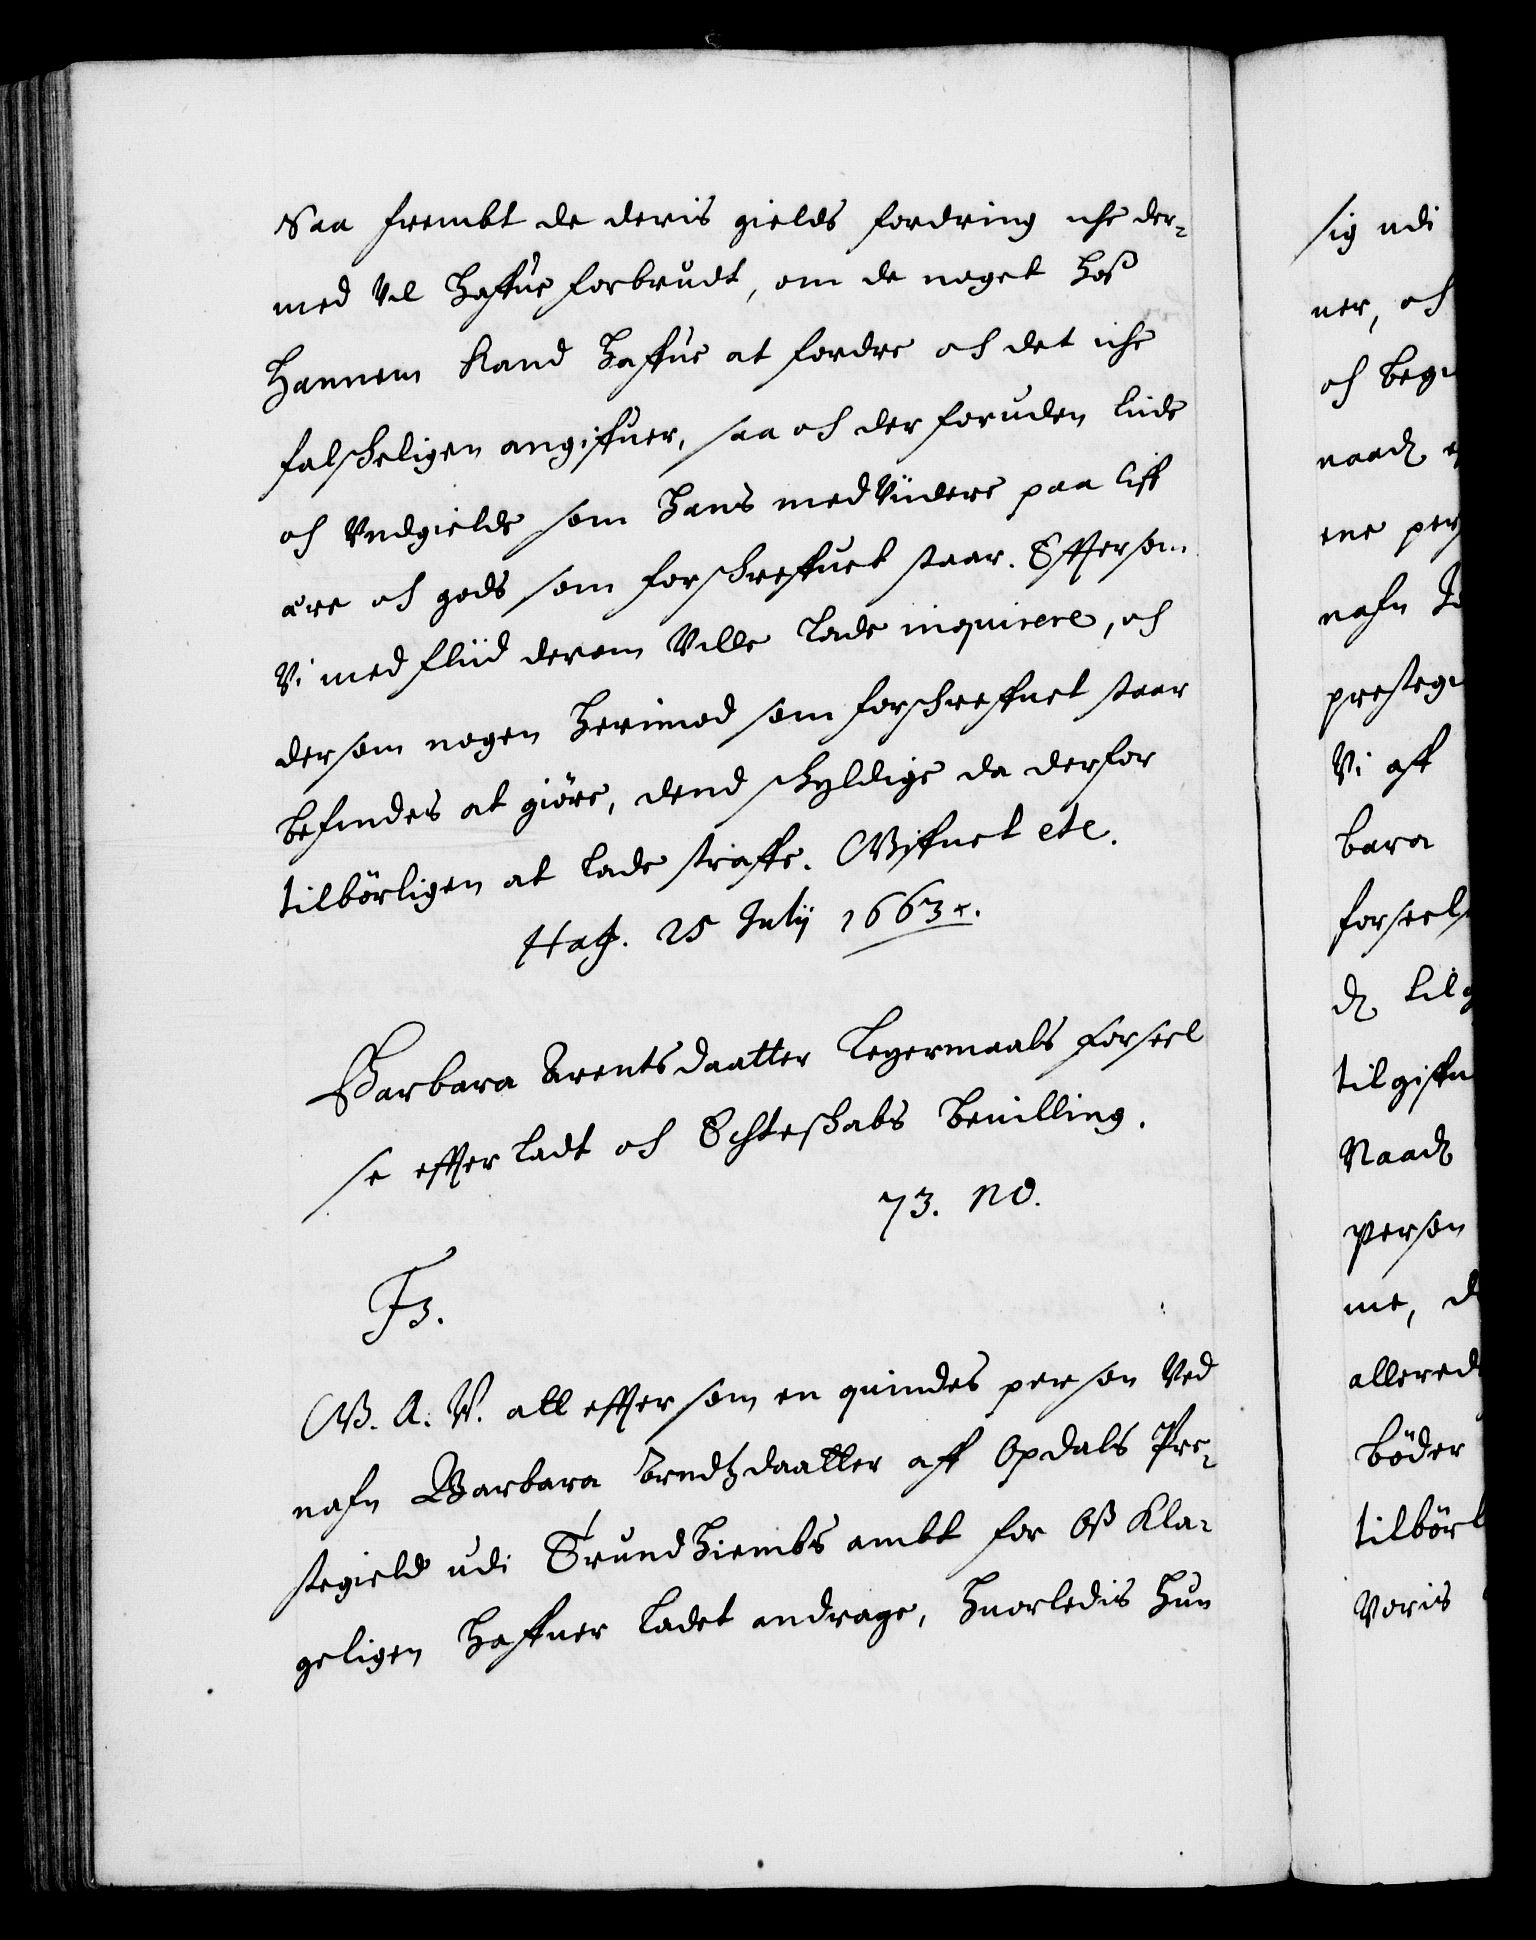 Saa frembt de deris gields fordring iche der¬
med Vil haffue forbrudt, om de noget hoß
hannem kand haffue at fordre och det iche
falskeligen angiffuer, saa och der foruden lide
och Vndgielde som hans medViidere paa liff
ære och gods som forschreffuet staar. Effter som
Vi med fliid derom Ville lade inqvirere, och
dersom nogen herimod som forschreffuet staar
befindes at giöre, dend skyldige da derfor
tilbörligen at lade straffe. Giffuet etc.
Haf. 25 Julij 1663.
Barbara Arentsdaatter Legermaals forseel
se effterladt och Echteskabs beuilling.
73. No.
F3.
G. A. V. att efftersom en quindes person Ved
nafn Barbara Arndtzdaatter aff Opdals Pre¬
stegield udi Trundhiembs ambt for Oß kla¬
geligen haffuer ladet andrage, huorledis hun
sig udi
ner, och
och beg
naad
ene per
nafn
presteg
Vi aff
bara
forseels
til
tilgiffu
Naad
person
me, d
allered
böder
tilbörl
Voris